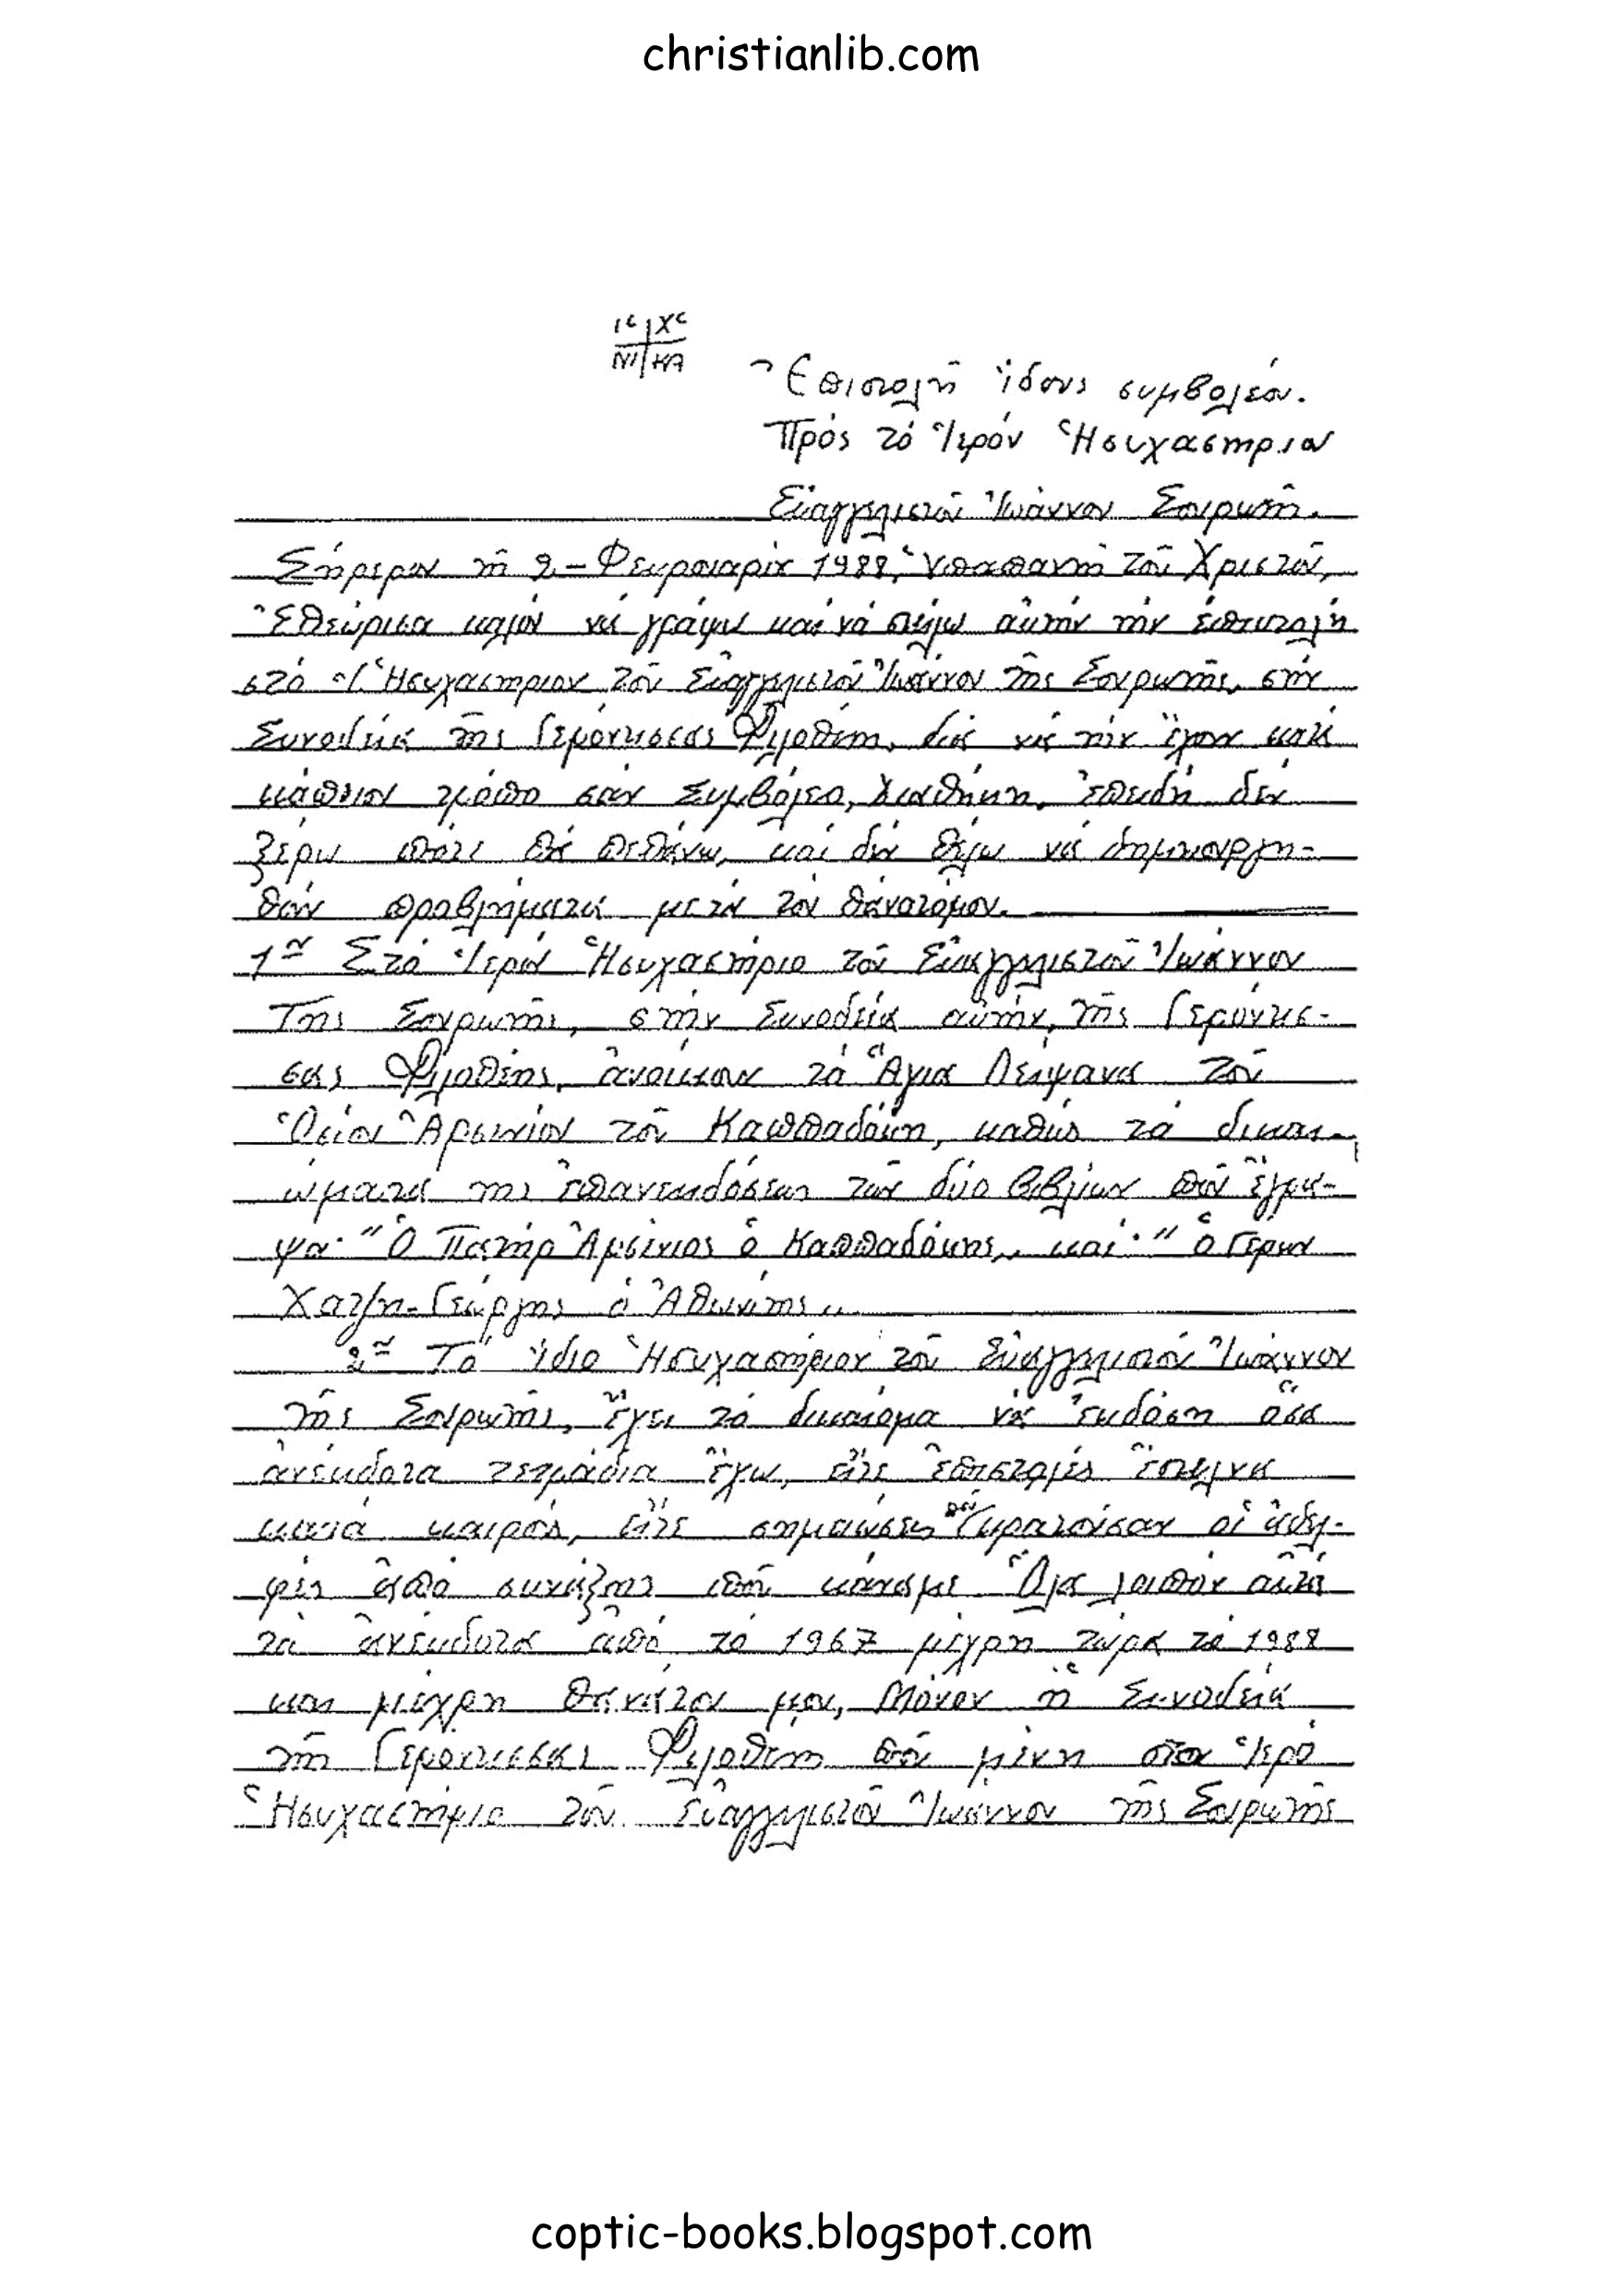 christianlib.com
ΙC ΧC
ΝΙ ΚΑ
Ἐπιστολή εἴδους συμβολέου.
Πρός τό Ἱερόν Ἡσυχαστηριον
Εὐαγγελιστοῦ Ἰωάννου Σουρωτῆ.
Σήμερον τῆ 2-Φευρουαρίου 1988, Ὑπαπαντή τοῦ Χριστοῦ,
Ἐθεώρισα καλόν νά γράψω καί νά στείλω αὐτήν τήν ἐπιστολή
στό Ἱ. Ἡσυχαστηριον τοῦ Εὐαγγελιστοῦ Ἰωάννου τῆς Σουρωτῆς, στήν
Συνοδεία τῆς Γερόντισσας Φιλοθέης, διά νά τήν ἔχουν κατά
κάποιον τρόπο σάν Συμβόλεο, Διαθήκη, ἐπειδή δέν
ξέρω πότε θά πεθάνω, καί δέν θέλω νά δημιουργη-
θοῦν προβλήματα μετά τόν θάνατόμου.
1ον Στό Ἱερόν Ἡσυχαστήριο τοῦ Εὐαγγελιστοῦ Ἰωάννου
Τῆς Σουρωτῆς, στήν Συνοδεία αὐτήν, τῆς Γερόντισ-
σας Φιλοθέης, ἀνοίκουν τά Ἅγια Λείψανα τοῦ
Ὁσίου Ἀρσενίου τοῦ Καππαδόκη, καθώς τά δικαι-
ώματα τῆς ἐπανεκδόσεως τῶν δύο βιβλίων πού ἔγρα-
ψα· "Ὁ Πατήρ Ἀρσένιος ὁ Καππαδόκης,, καί· "ὁ Γέρων
Χατζη-Γεώργης ὁ Ἀθωνίτης,,
2ον Τό ἴδιο Ἡσυχαστήριον τοῦ Εὐαγγελιστοῦ Ἰωάννου
τῆς Σουρωτῆς, ἔχει τό δικαίομα νά ἐκδόση ὅσα
ἀνέκδοτα τετράδια ἔχω, εἴτε ἐπιστολές ἔστελνα
κατά καιρούς, εἴτε σημειώσεις πού κρατούσαν οἱ ἀδελ-
φές ἀπό συνάξεις πού κάναμε Ὅλα λοιπόν αὐτά
τά ἀνέκδοτα ἀπό τό 1967 μέχρη τώρα τό 1988
και μέχρη θανάτου μου, Μόνον ἡ Συνοδεία
τῆς Γερόντισσας Φιλοθέης πού μένη στον Ἱερό
Ἡσυχαστήριο τοῦ Εὐαγγελιστοῦ Ἰωάννου τῆς Σουρωτῆς
coptic-books.blogspot.com